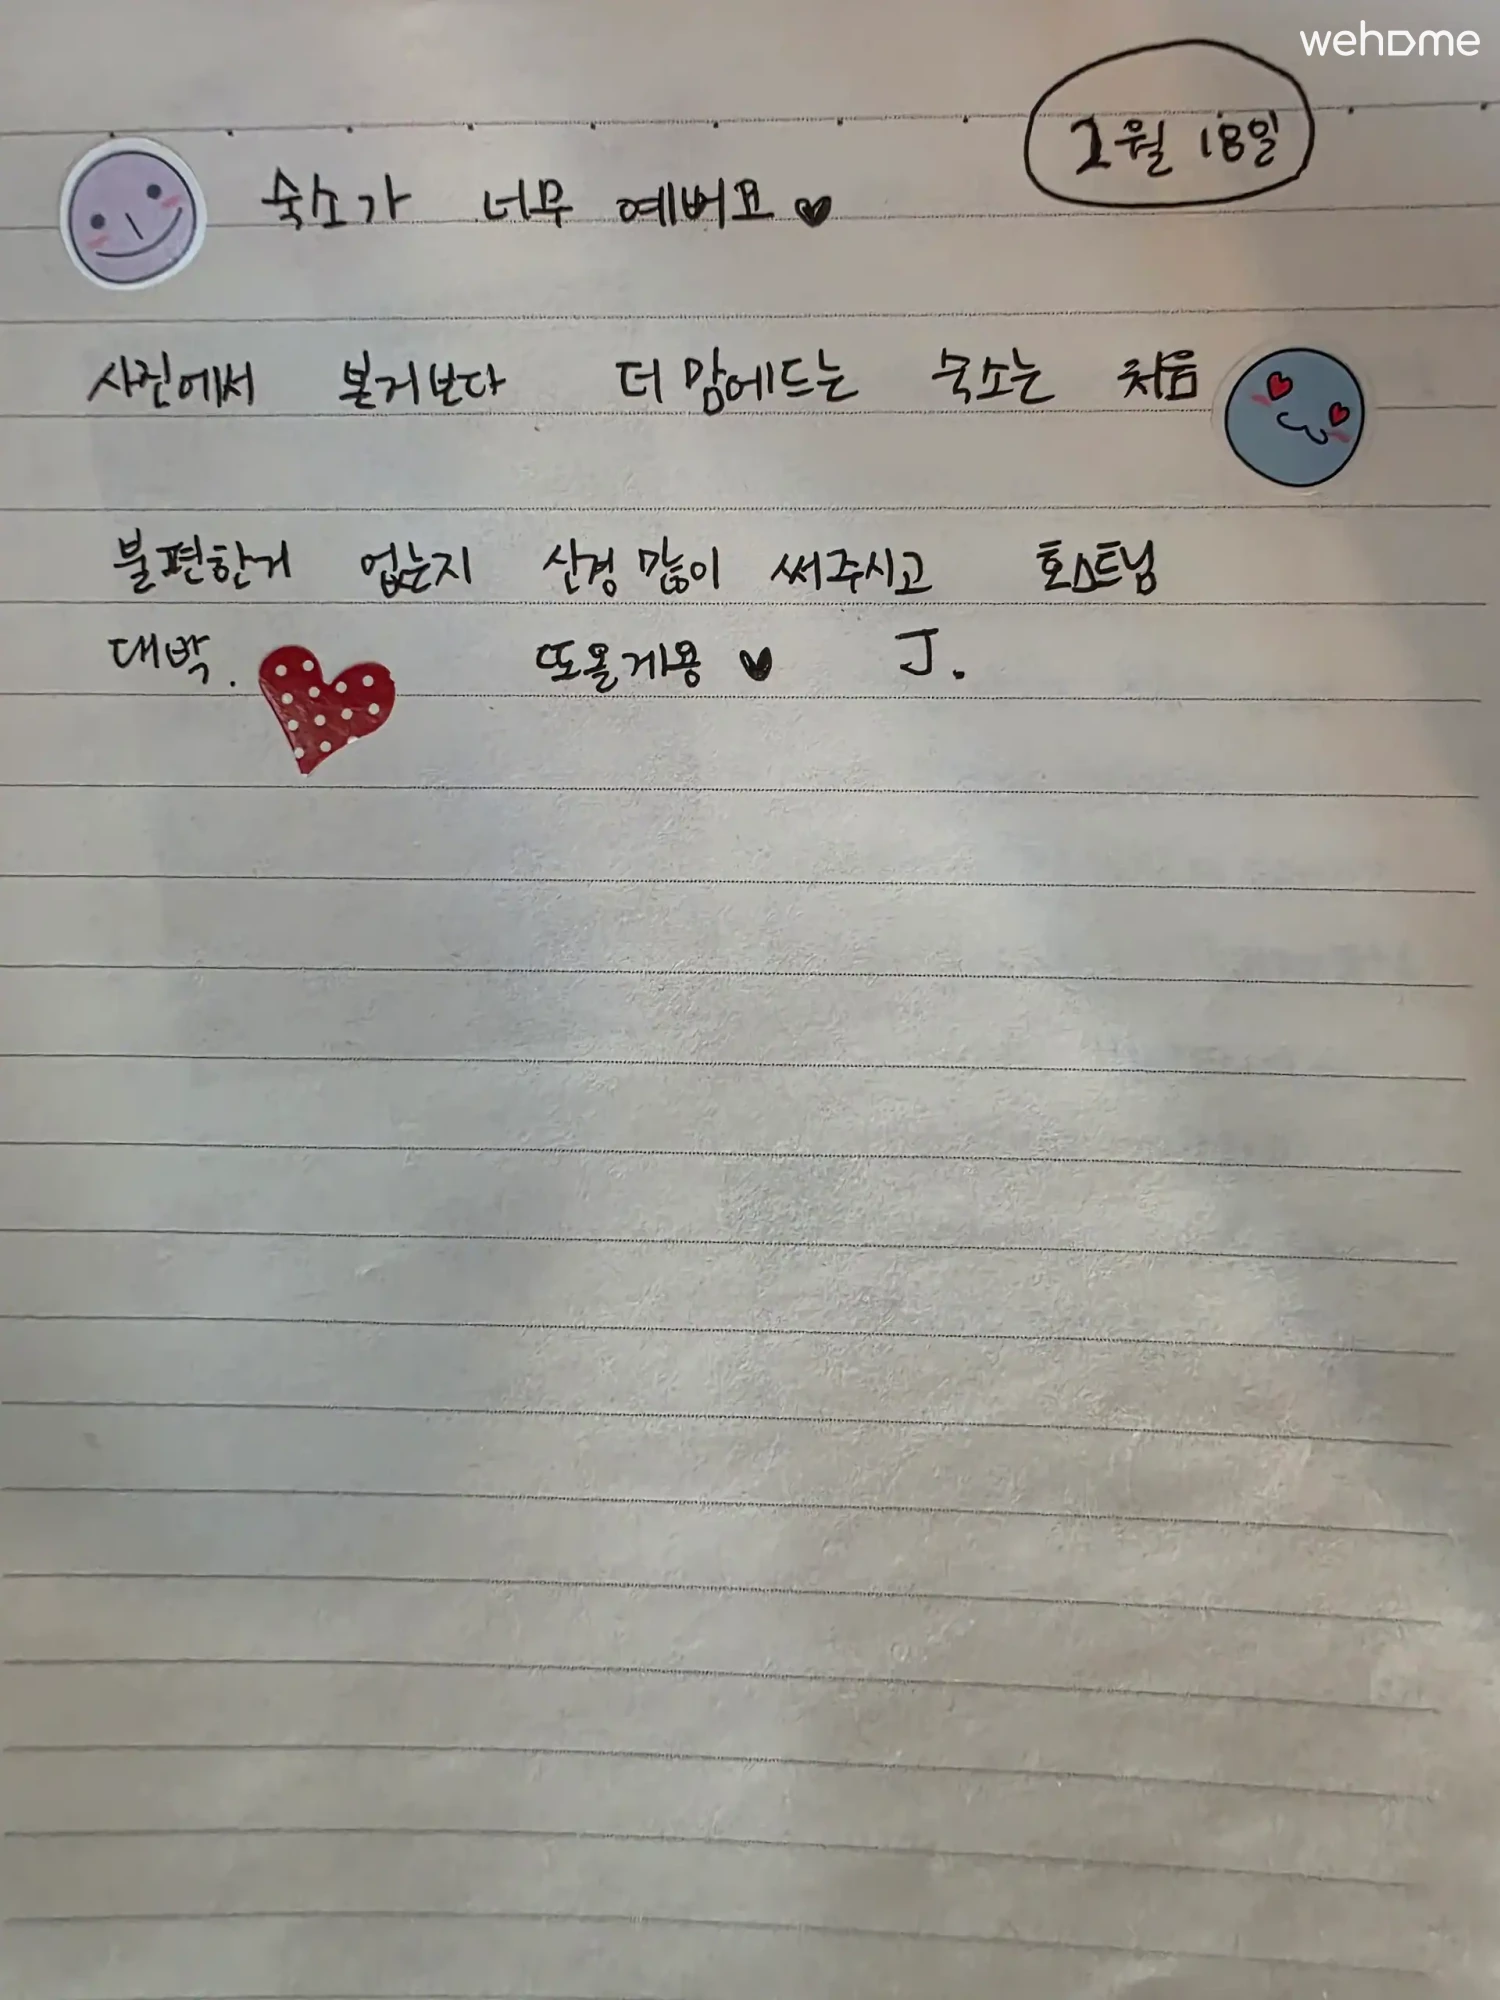 wehome
2월 18일
숙소가 너무 예버요 ♥
사진에서 본거보다 더 맘에드는 숙소는 처음
불편한거 없는지 신경 많이 써주시고 호스트님
대박. 또올게용 ♥ J.